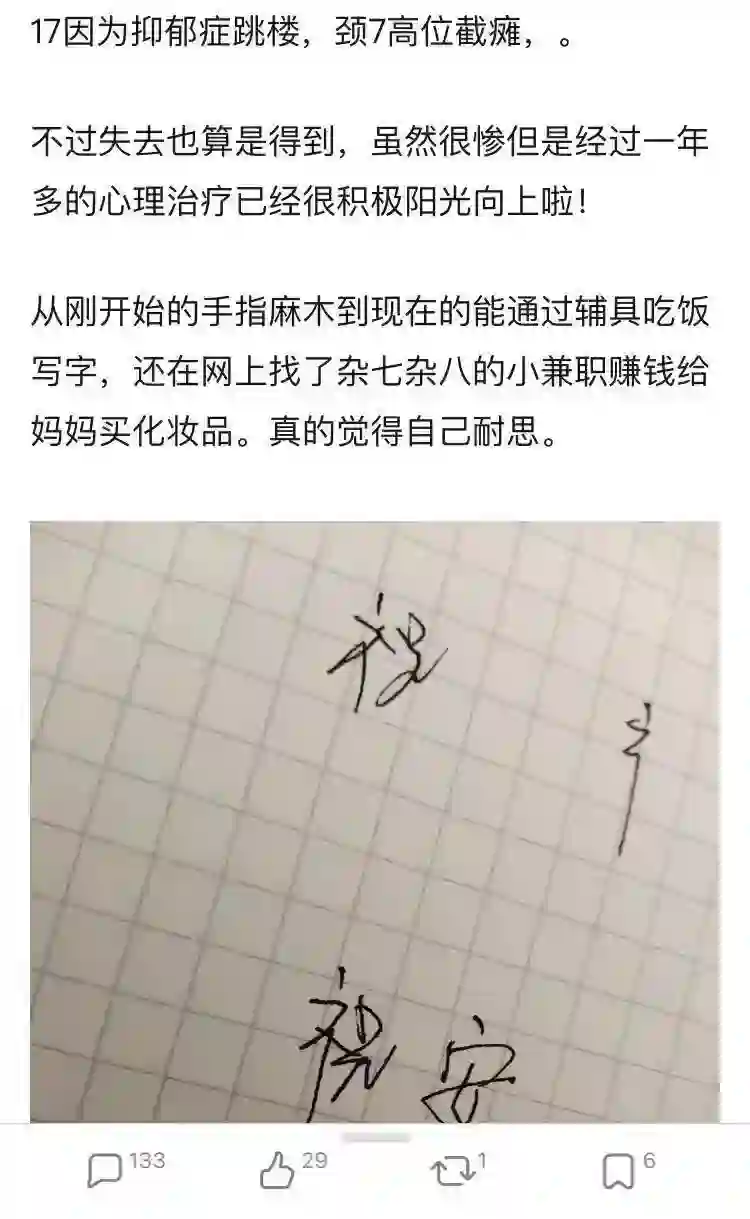 17因为抑郁症跳楼，颈7高位截瘫，。
不过失去也算是得到，虽然很惨但是经过一年
多的心理治疗已经很积极阳光向上啦！
从刚开始的手指麻木到现在的能通过辅具吃饭
写字，还在网上找了杂七杂八的小兼职赚钱给
妈妈买化妆品。真的觉得自己耐思。
祝
祝安
133 29 1 6